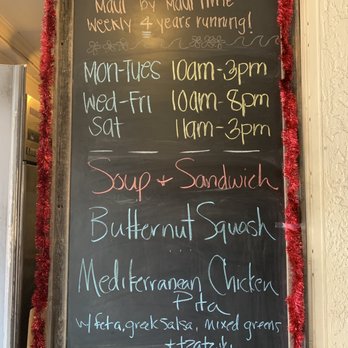 Maui by Maui Time
weekly 4 years running!
Mon-Tues 10am-3pm
Wed-Fri 10am-8pm
Sat 11am-3pm
Soup + Sandwich
Butternut Squash
Mediterranean Chicken
Pita
w/feta, greek salsa, mixed greens
+ tzatziki